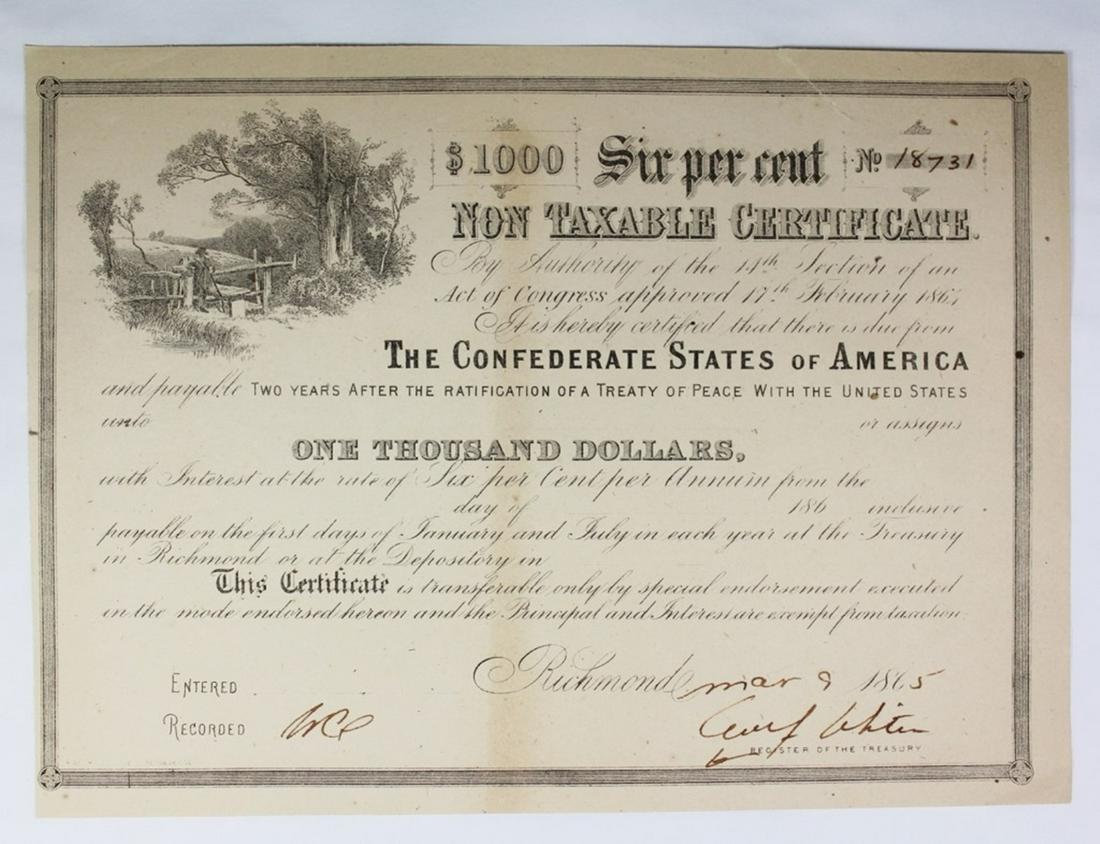 $1000 Six per cent No 18731
NON TAXABLE CERTIFICATE.
By Authority of the 14th Section of an
Act of Congress approved 17th February 1864
It is hereby certified that there is due from
THE CONFEDERATE STATES OF AMERICA
and payable TWO YEARS AFTER THE RATIFICATION OF A TREATY OF PEACE WITH THE UNITED STATES
unto or assigns
ONE THOUSAND DOLLARS,
with Interest at the rate of Six per Cent per Annum from the
day of 186 inclusive
payable on the first days of January and July in each year at the Treasury
in Richmond or at the Depository in
This Certificate is transferable only by special endorsement executed
in the mode endorsed hereon and the Principal and Interest are exempt from taxation
Richmond Mar 9 1865
ENTERED
RECORDED
REGISTER OF THE TREASURY